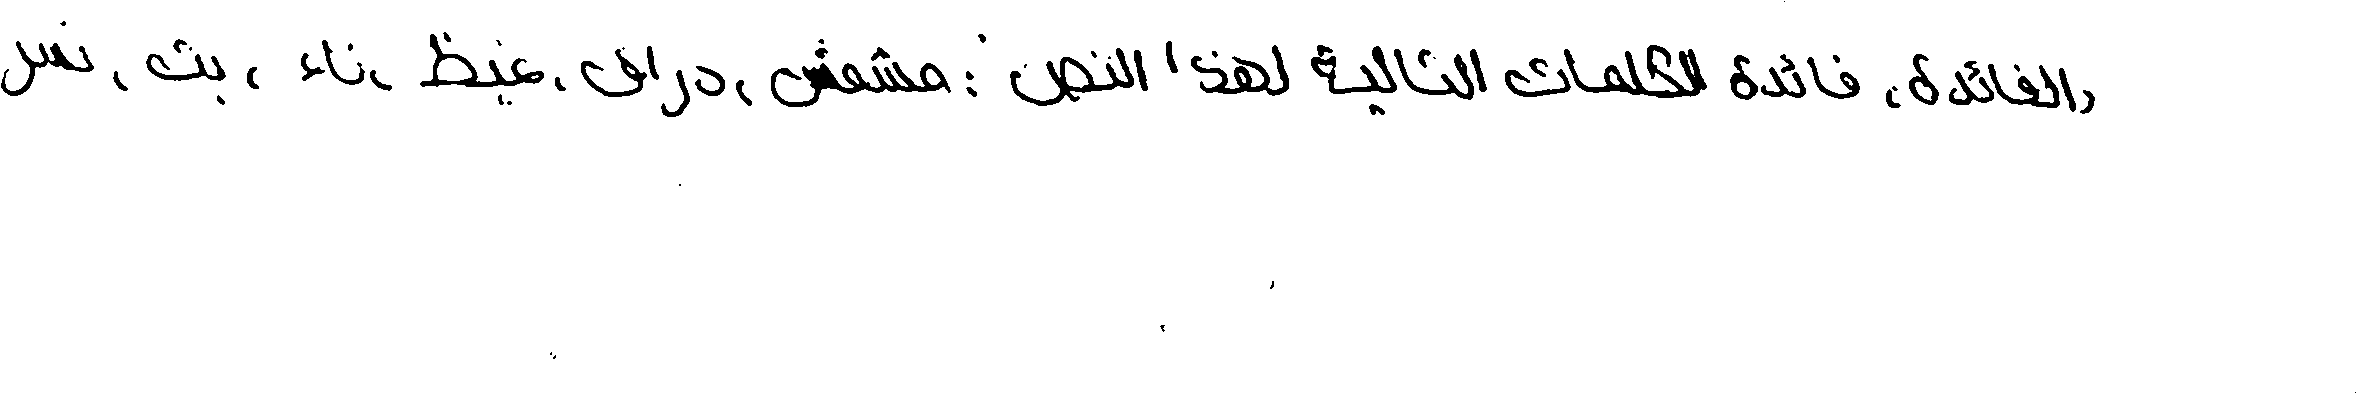 والفائدة، فائدة الكلمات التالية لهذا النص: مشمش، دراق، غيظ، ناء، بث، نسر